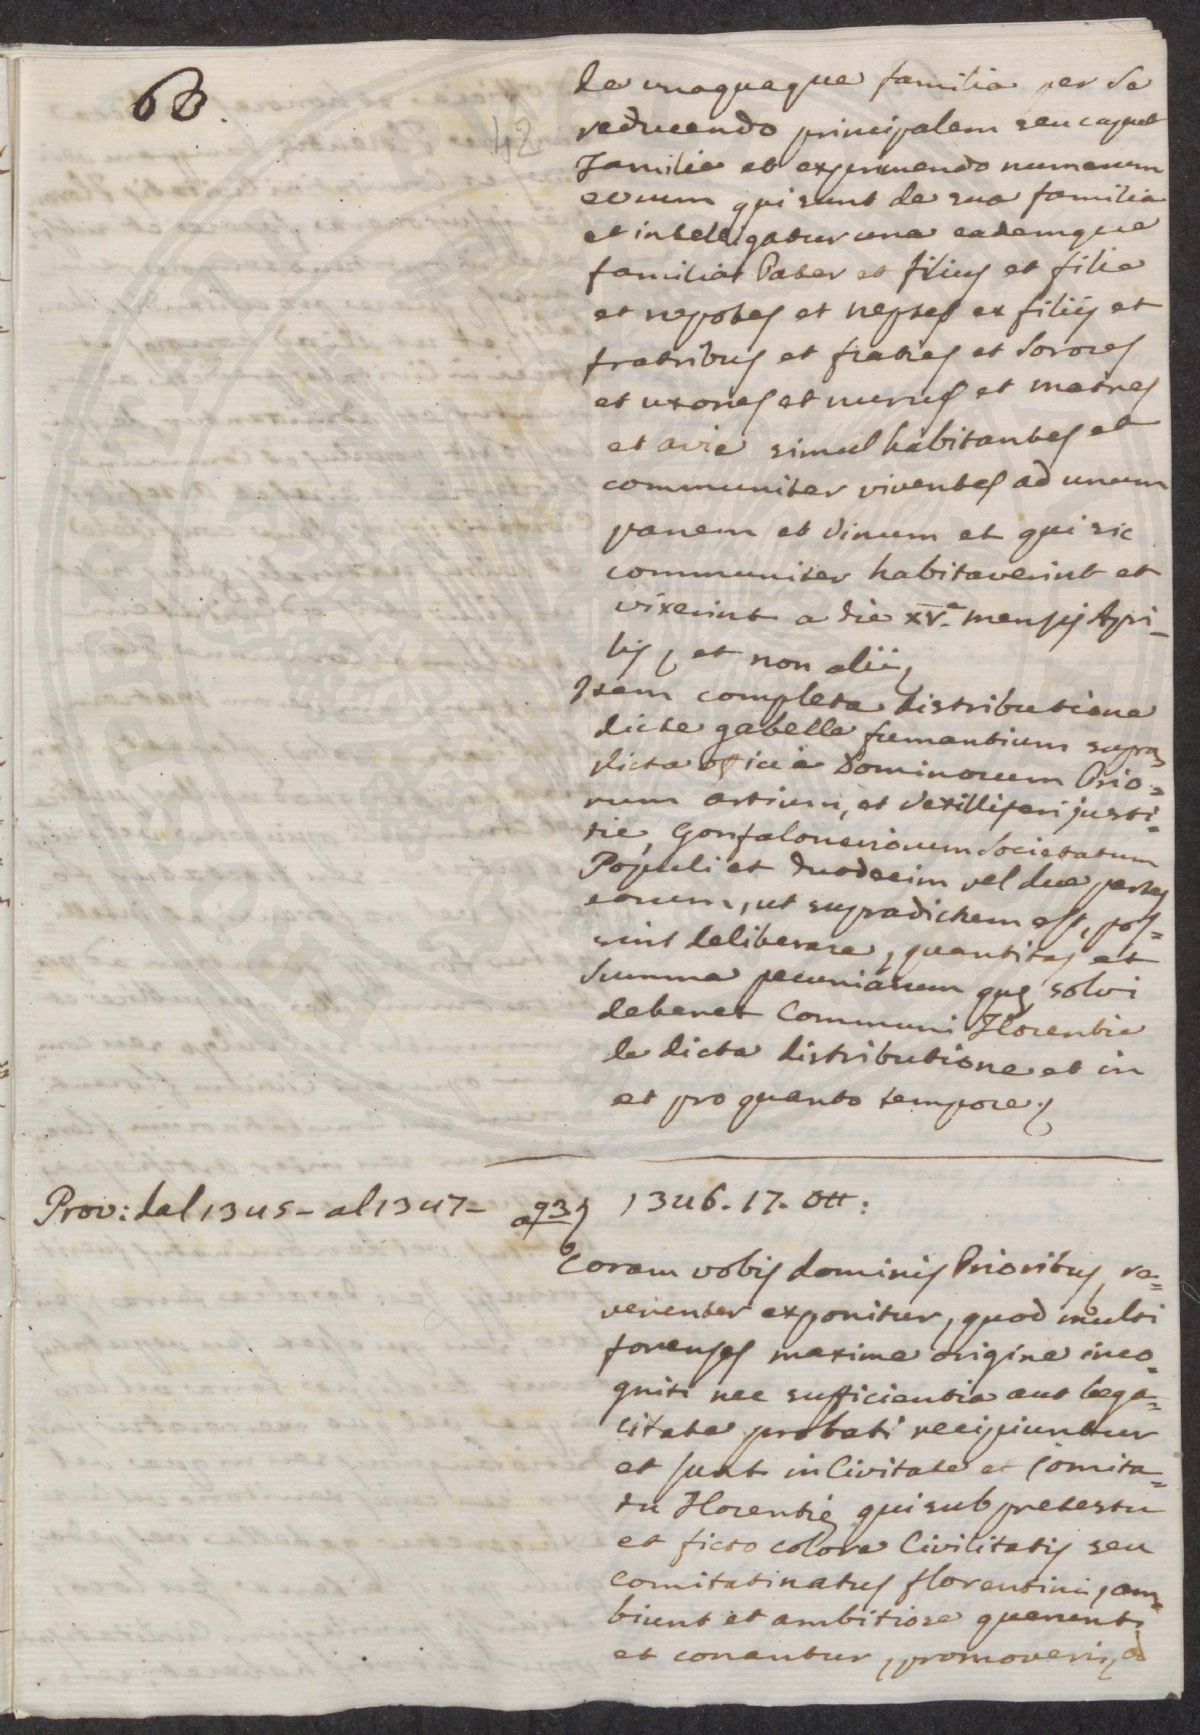 63.
42
de unaquaque familia per se
reducendo principalem seu caput
Familie et exprimendo numerum
eorum qui sunt de sua familia
et intelligatur una eademque
familia Pater et filius et filie
et nepotes et neptes ex filiis et
fratribus et fratres et Sorores
et uxores et nurus et matres
et avie simul habitantes et
communiter viventes ad unum
panem et vinum et qui sic
communiter habitaverint et
vixerint a die XV.ª mensis Apri-
lis, et non alii,
Item completa distributione
dicte gabelle fumantium supra
dicta officia Dominorum Prio=
rum artium, et Vexilliferi justi=
tie, Gonfalonerionum Societatum
Populi et duodecim vel due partes
eorum, ut supradictum est, pos=
sint deliberare, quantitas et
Summa pecuniarum que solvi
deberet Communi Florentie
de dicta distributione et in
et pro quanto tempore,
Prov: dal 1345 - al 1347 - a 93 1346. 17. Ott:
Coram vobis dominis Prioribus, re=
verenter exponitur, quod multi
forenses maxime origine inco=
gniti nec sufficientia aut lega=
litate probati recipiuntur
et sunt in Civitate et Comita=
tu Florentie qui sub pretestu
et ficto colore Civilitatis seu
Comitatinatus florentini, am=
biunt et ambitiose querunt
et conantur, promoveri, ad